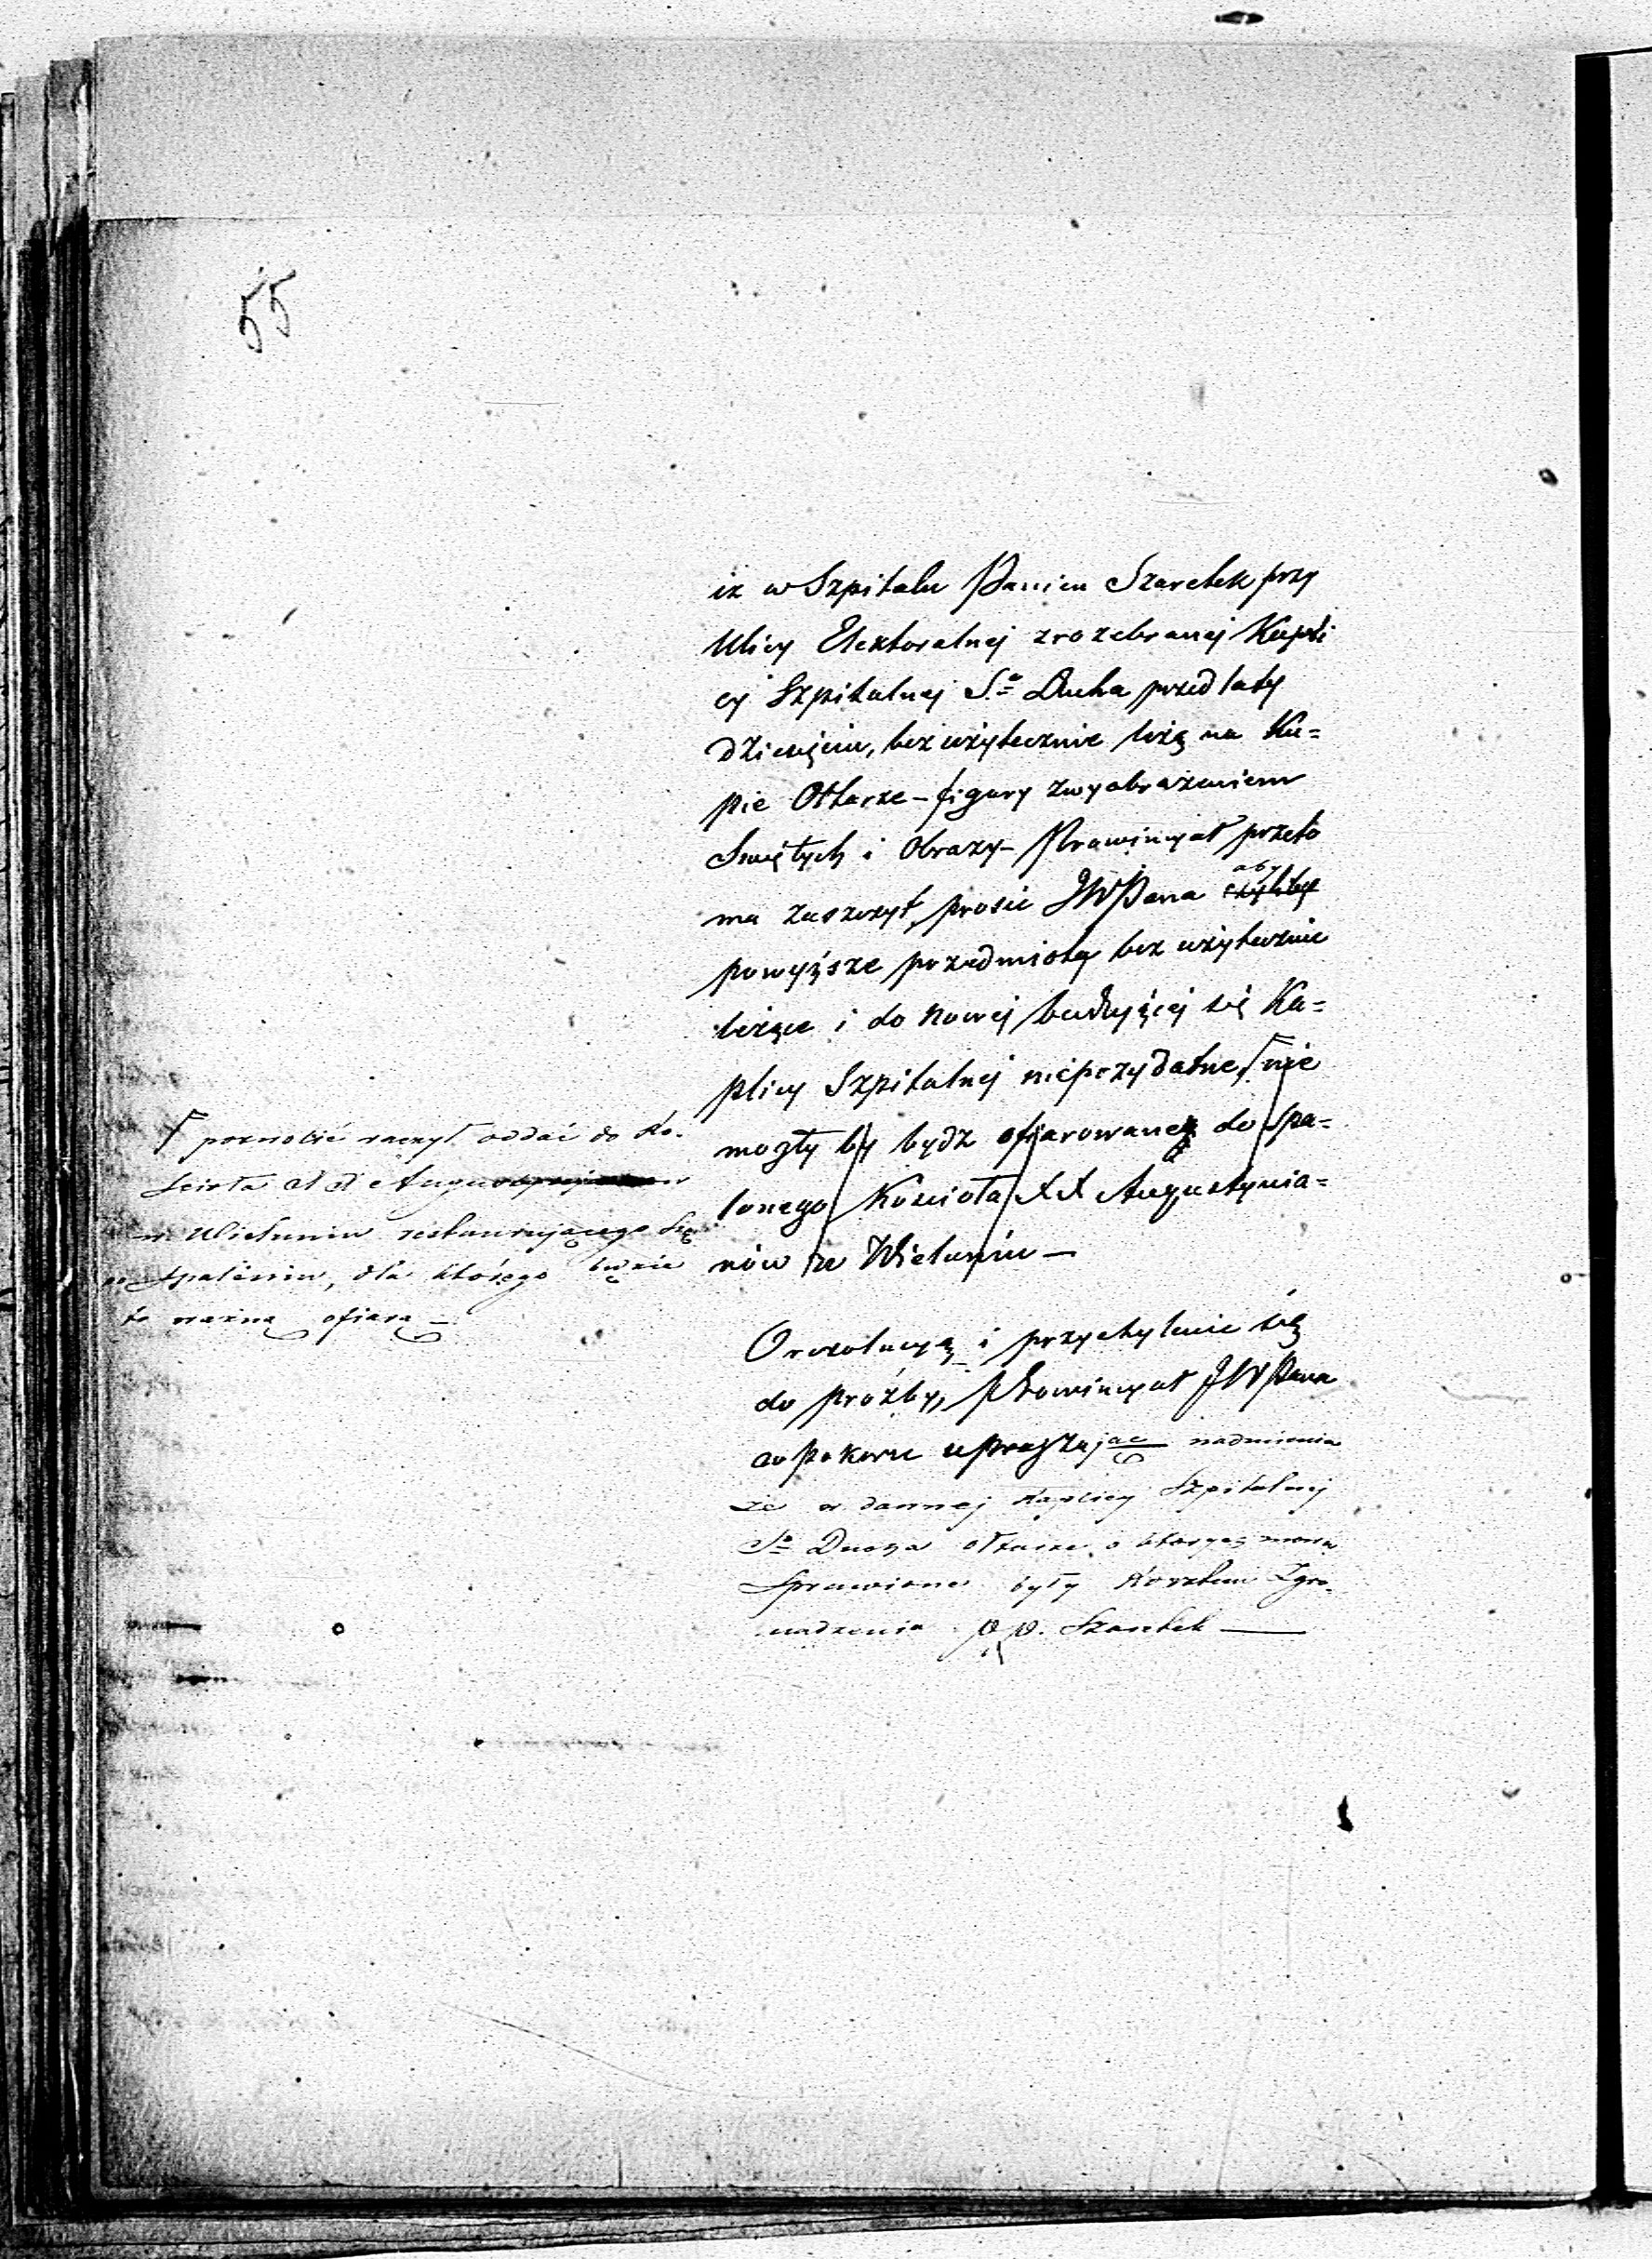 55
iż w Szpitalu Panien Szaretek przy
Ulicy Elektoralnej z rozebranej Kapli
cy Szpitalnej S.º Ducha przed laty
dziesięciu, bez użytecznie leżą na Ku=
pie Ołtarze – figury z wyobrażeniem
Swiętych i Obrazy – Prowincyał przeto
ma zaszczyt prosić JWPana aby czyliby
powyższe przedmioty bez użytecznie
leżące i do nowej budującej się Ka=
plicy Szpitalnej nieprzydatne, nie
mogły by bydz ofiarowane do spa=
lonego Kościoła XX Augustynia=
nów we Wieluniu —
pozwolić raczył oddać do Ko-
ścioła XX
w Wieluniu restaurującego się
po Spaleniu, dla którego będzie
to ważną ofiarą —
O rezolucyą i przychylenie się
do prożby, Prowincyał JWPana
w pokorze upraszając nadmienia
że w dawnej Kaplicy Szpitalnej
Sº Ducha ołtarze o których mowa
Sprawione były Kosztem Zgro-
madzenia PP. Szaretek —